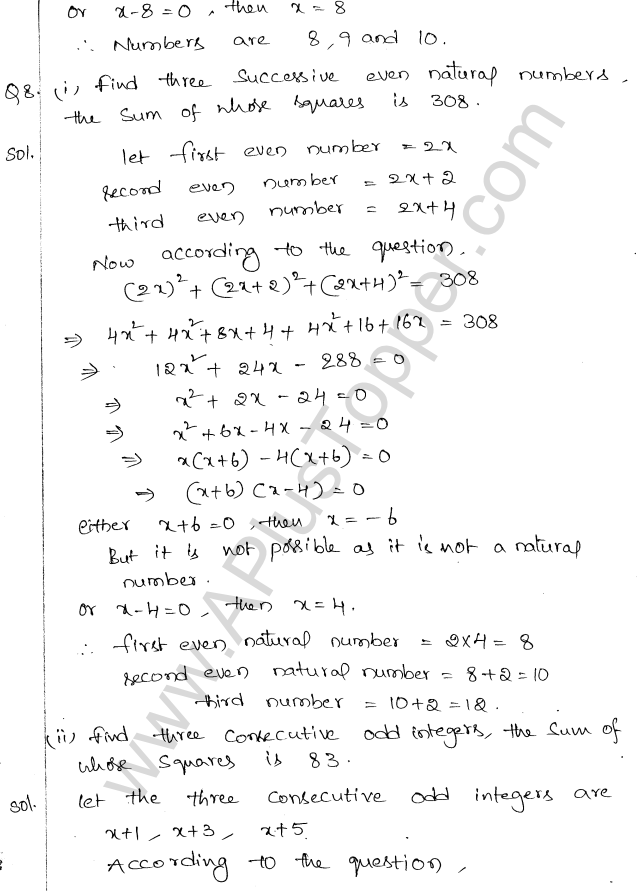 or x-8=0, then x = 8
∴ Numbers are 8, 9 and 10.
Q8. (i) find three successive even natural numbers,
the sum of whose squares is 308.
Sol. let first even number = 2x
second even number = 2x+2
third even number = 2x+4
Now according to the question,
(2x)² + (2x+2)² + (2x+4)² = 308
⇒ 4x² + 4x² + 8x + 4 + 4x² + 16 + 16x = 308
⇒ 12x² + 24x - 288 = 0
⇒ x² + 2x - 24 = 0
⇒ x² + 6x - 4x - 24 = 0
⇒ x(x+6) - 4(x+6) = 0
⇒ (x+6) (x-4) = 0
either x+6=0, then x = -6
But it is not possible as it is not a natural
number.
or x-4=0, then x=4.
∴ first even natural number = 2×4 = 8
second even natural number = 8+2=10
third number = 10+2=12.
(ii) find three consecutive odd integers, the sum of
whose squares is 83.
Sol. let the three consecutive odd integers are
x+1, x+3, x+5.
According to the question,
www.APlusTopper.com